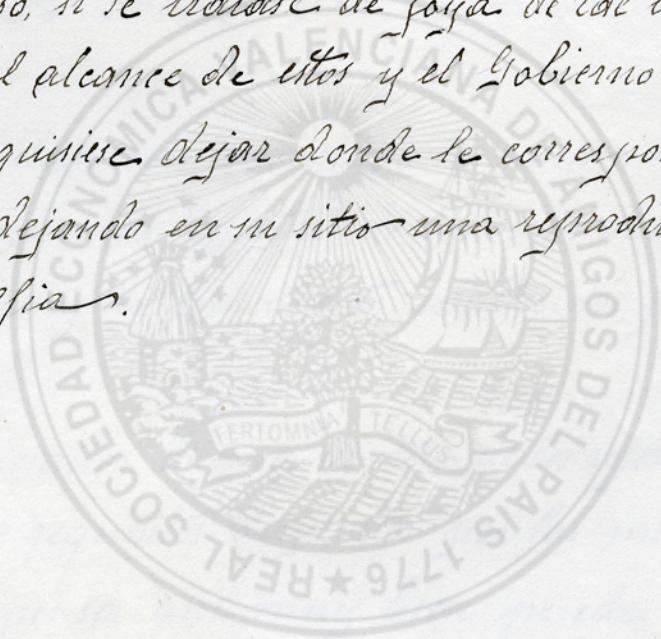 si se tratase de joya de tal
alcance de estos y el Gobierno
quisiese dejar donde le
dejando en su sitio una
REAL SOCIEDAD ECONOMICA VALENCIANA DE AMIGOS DEL PAIS 1776 ★
FERT OMNIA TELLUS